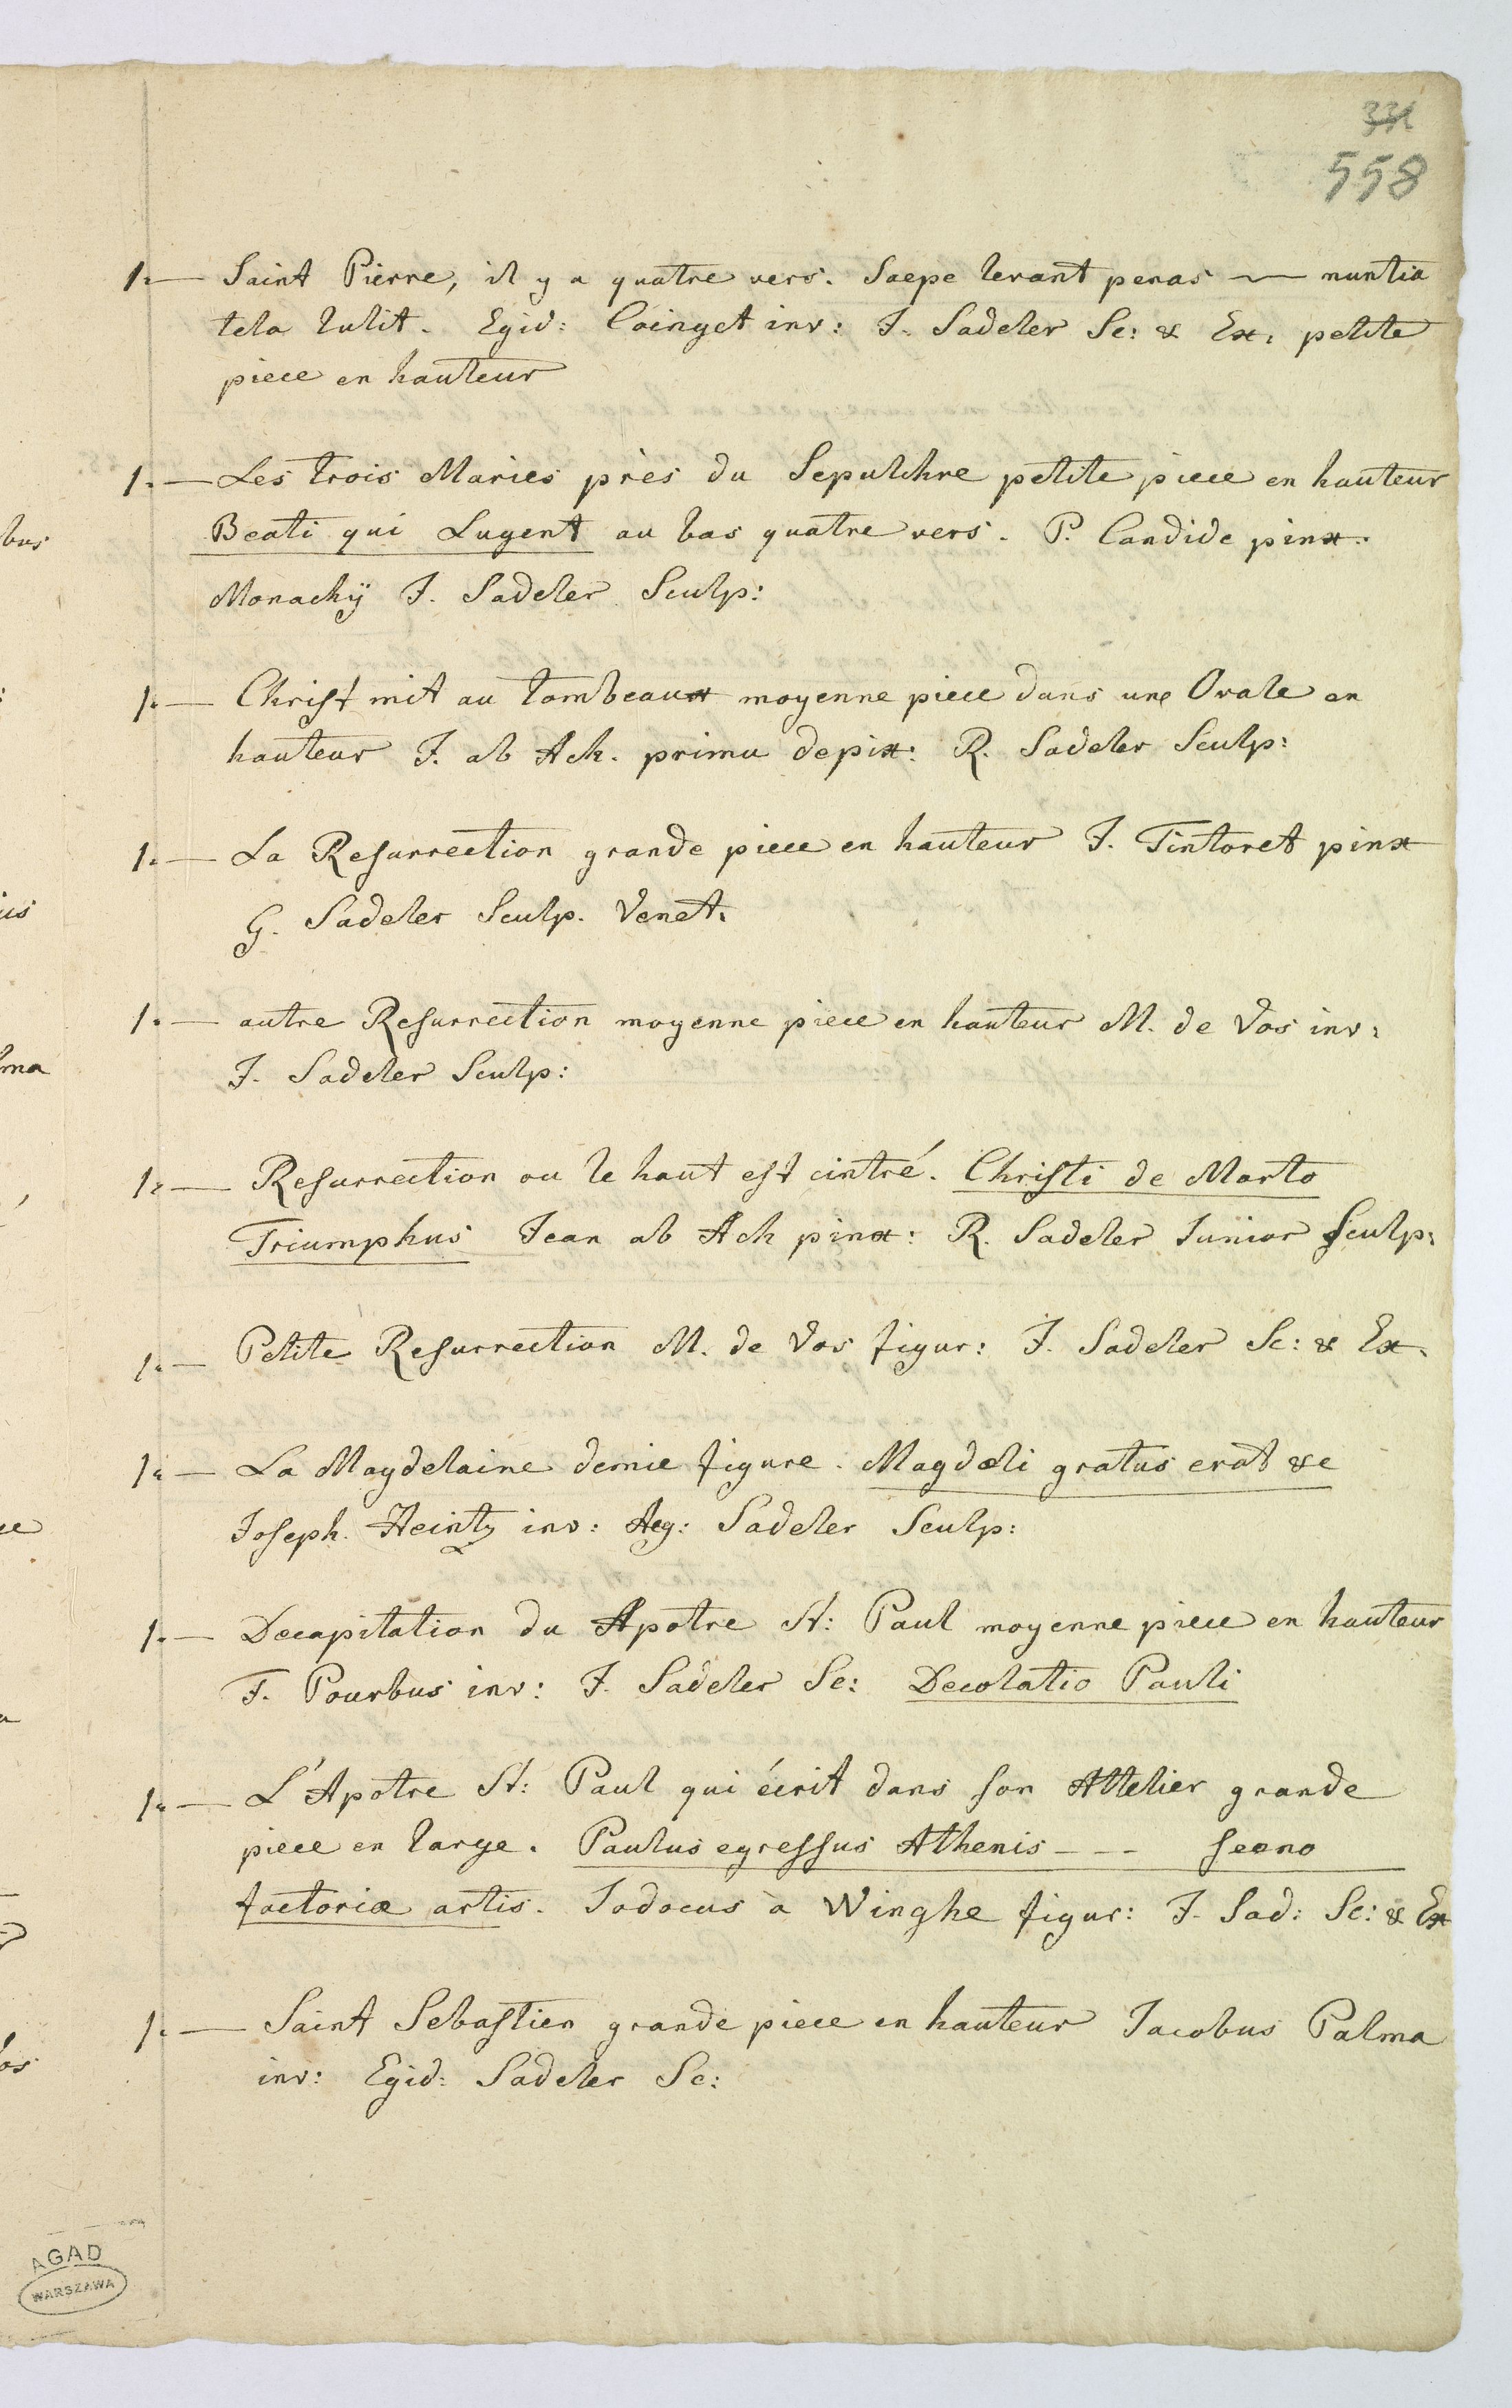 331
558
1. — Saint Pierre, il y a quatre vers. Saepe levant penas — nuntia
tela tulit. Egid: Coingct inv: J. Sadeler Sc: & Ex: petite
piece en hauteur
1. — Les trois Maries près du Sepulchre petite piece en hauteur
Beati qui Lugent au bas quatre vers. P. Candide pinx.
Monachÿ J. Sadeler Sculp:
1. — Christ mit au tombeaux moyenne piece dans une Ovale en
hauteur J. ab Ach. primu depix: R. Sadeler Sculp:
1. — La Resurrection grande piece en hauteur J. Tintoret pinx
G. Sadeler Sculp. Venet.
1. — autre Resurrection moyenne piece en hauteur M. de Vos inv:
J. Sadeler Sculp:
1. — Resurrection ou le haut est cintré. Christi de Morto
Triumphus Jean ab Ach pinx: R. Sadeler Junior Sculp:
1. — Petite Resurrection M. de Vos figur: J. Sadeler Sc: & Ex.
1. — La Magdelaine demie figure. Magdœli gratus erat &c
Joseph. Heintz inv: Aeg: Sadeler Sculp:
1. — Decapitation du Apotre St: Paul moyenne piece en hauteur
F. Pourbus inv: J. Sadeler Sc: Decolatio Pauli
1. — L'Apotre St: Paul qui écrit dans son Attelier grande
piece en large. Paulus egressus Athenis - - - sceno
factoriæ artis. Jodocus à Winghe figur: J. Sad: Sc: & Ex
1. — Saint Sebastien grande piece en hauteur Jacobus Palma
inv: Egid: Sadeler Sc:
AGAD
WARSZAWA